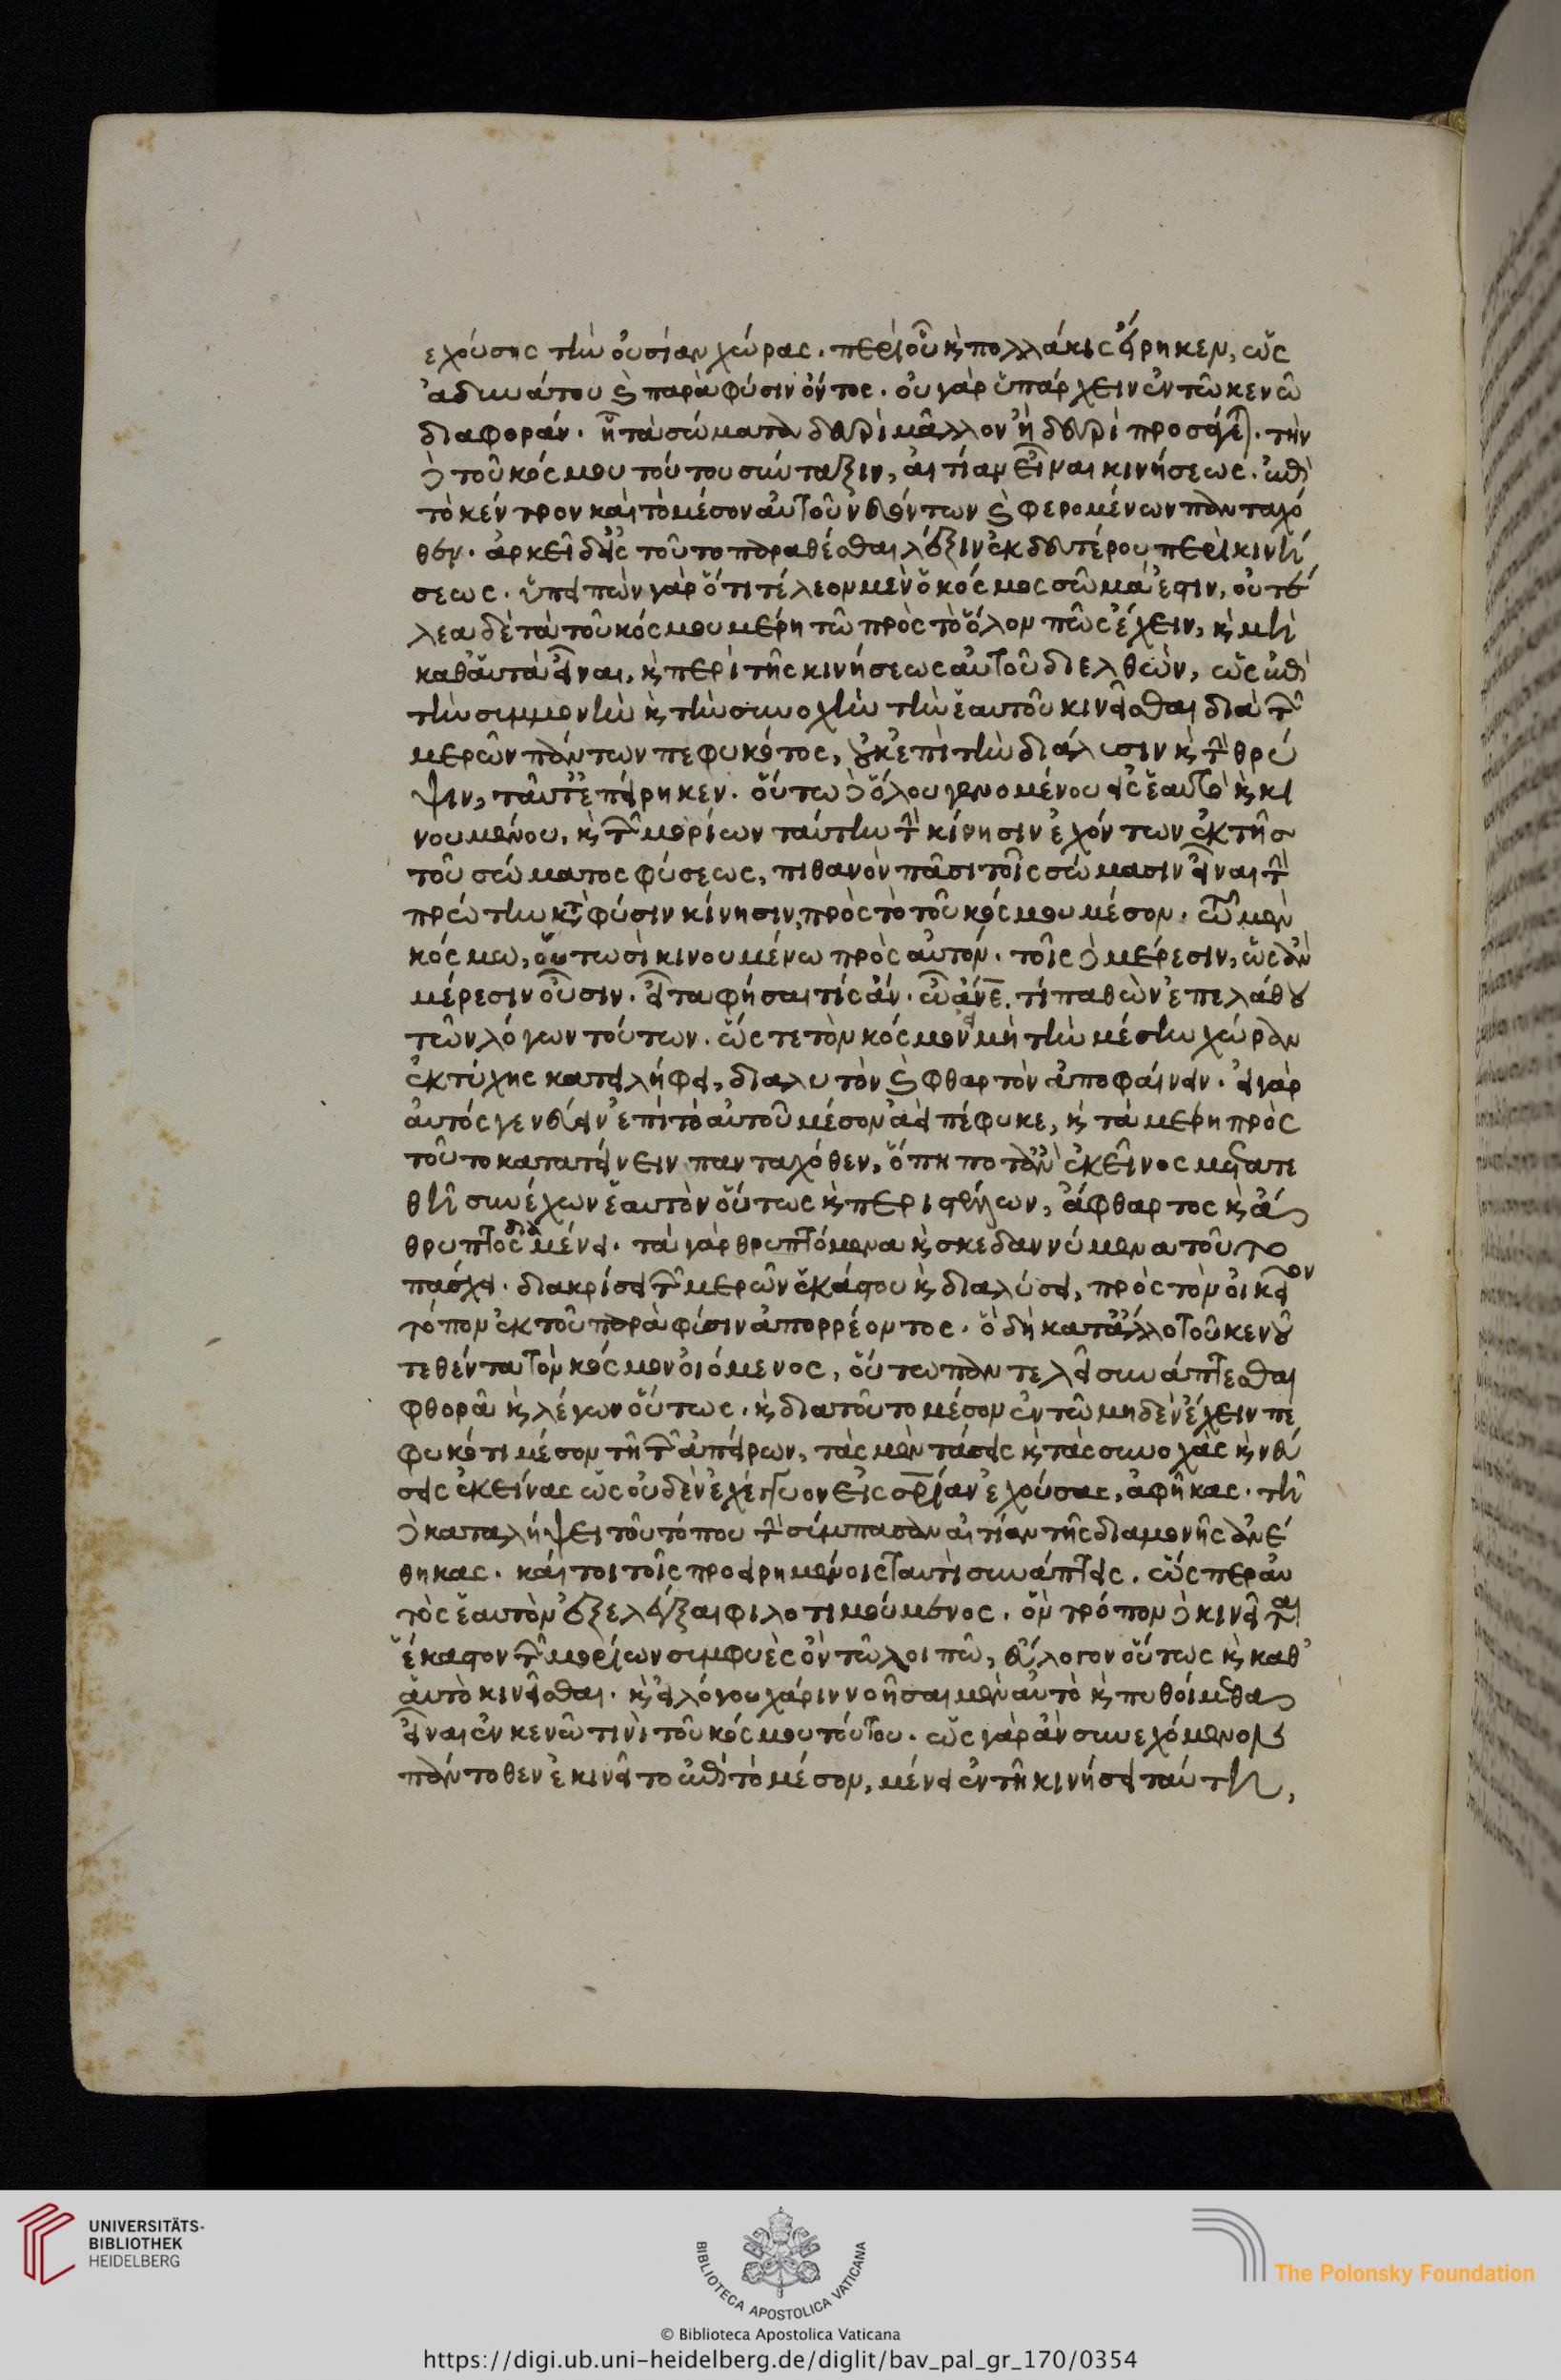 εχούσης τὴν οὐσίαν χώρας. περὶ οὗ καὶ πολλάκις εἴρηκεν, ὡς
ἀδυνάτου καὶ παρὰ φύσιν ὄντος. οὐ γὰρ ὑπάρχειν ἐν τῶ κενῶ
διαφοράν. ἧ τὰ σώματα δευρὶ μᾶλλον ἢ δευρὶ προσάγεται. τὴν
δὲ τοῦ κόσμου τούτου σύνταξιν, αἰτίαν εἶναι κινήσεως. ἐπὶ
τὸ κέντρον καὶ τὸ μέσον αὐτοῦ νευόντων καὶ φερομένων πανταχό
θεν. ἀρκεῖ δ' εἰς τοῦτο παραθέσθαι λέξιν ἐκ δευτέρου περὶ κινή
σεως. ὑπειπὼν γὰρ ὅτι τέλεον μὲν ὁ κόσμος σῶμά ἐστιν, οὐ τέ
λεα δὲ τὰ τοῦ κόσμου μέρη τῶ πρὸς τὸ ὅλον πῶς ἔχειν, καὶ μὴ
καθ' αὑτὰ εἶναι, καὶ περὶ τῆς κινήσεως αὐτοῦ διελθὼν, ὡς ἐπὶ
τὴν συμμονὴν καὶ τὴν συνοχὴν τὴν ἑαυτοῦ κινεῖσθαι διὰ τῶν
μερῶν πάντων πεφυκότος, οὐκ ἐπὶ τὴν διάλυσιν καὶ τὴν θρύ
ψιν, ταῦτ' ἐπείρηκεν. οὕτω δὲ ὅλου γενομένου εἰς ἑαυτὸ καὶ κι
νουμένου, καὶ τῶν μορίων ταύτην τὴν κίνησιν ἐχόντων ἐκ τῆς
τοῦ σώματος φύσεως, πιθανὸν πᾶσι τοῖς σώμασιν εἶναι τὴν
πρώτην κατὰ φύσιν κίνησιν, πρὸς τὸ τοῦ κόσμου μέσον. τῶ μὲν
κόσμω, οὑτωσὶ κινουμένω πρὸς αὑτόν. τοῖς δὲ μέρεσιν, ὡς ἂν
μέρεσιν οὖσιν. εἶτα φήσαι τίς ἄν. ὦ ἄνε. τί παθὼν ἐπελάθου
τῶν λόγων τούτων. ὥςτε τὸν κόσμον εἰ μὴ τὴν μέσην χώραν
ἐκ τύχης κατειλήφει, διαλυτὸν καὶ φθαρτὸν ἀποφαίνειν. εἰ γὰρ
αὐτός γε νεύειν ἐπὶ τὸ αὑτοῦ μέσον ἀεὶ πέφυκε, καὶ τὰ μέρη πρὸς
τοῦτο κατατείνειν πανταχόθεν, ὅπη ποτ' ἂν ἐκεῖνος μετατε
θῆ συνέχων ἑαυτὸν οὕτως καὶ περιστέλλων, ἄφθαρτος καὶ ἄ
θρυπτος διαμένει. τὰ γὰρ θρυπτόμενα καὶ σκεδαννύμενα τοῦτο
πάσχει. διακρίσει τῶν μερῶν ἑκάστου καὶ διαλύσει, πρὸς τὸν οἰκεῖον
τόπον ἐκ τοῦ παρὰ φύσιν ἀπορρέοντος. ὁ δὴ κατ' ἄλλο τοῦ κενοῦ
τεθέντα τὸν κόσμον οἰόμενος, οὕτω παντελεῖ συνάπτεσθαι
φθορᾶ καὶ λέγων οὕτως. καὶ διατοῦτο μέσον ἐν τῶ μηδὲν ἔχειν πε
φυκότι μέσον τῆ τῶν ἀπείρων, τὰς μὲν τάσεις καὶ τὰς συνοχὰς καὶ νεύ
σεις ἐκείνας ὡς οὐδὲν ἐχέγγυον εἰς σρίαν ἐχούσας, ἀφῆκας. τῆ
δὲ καταλήψει τοῦ τόπου τὴν σύμπασαν αἰτίαν τῆς διαμονῆς ἀνέ
θηκας. καίτοι τοῖς προειρημένοις ταυτὶ συνάπτεις. ὥςπερ αὐ
τὸς ἑαυτὸν ἐξελέγξαι φιλοτιμούμενος. ὃν τρόπον δὲ κινεῖται
ἕκαστον τῶν μορίων συμφυὲς ὂν τῶ λοιπῶ, εὔλογον οὕτως καὶ καθ'
αὑτὸ κινεῖσθαι. καὶ εἰ λόγου χάριν νοῆσαι μὲν αὐτὸ καὶ πυθοίμεθα
εἶναι ἐν κενῶ τινὶ τοῦ κόσμου τούτου. ὡς γὰρ ἂν συνεχόμενον
πάντοθεν ἐκινεῖτο ἐπὶ τὸ μέσον, μένει ἐν τῆ κινήσει ταύτη,
UNIVERSITÄTS-
BIBLIOTHEK
HEIDELBERG
BIBLIOTECA APOSTOLICA VATICANA
The Polonsky Foundation
© Biblioteca Apostolica Vaticana
https://digi.ub.uni-heidelberg.de/diglit/bav_pal_gr_170/0354